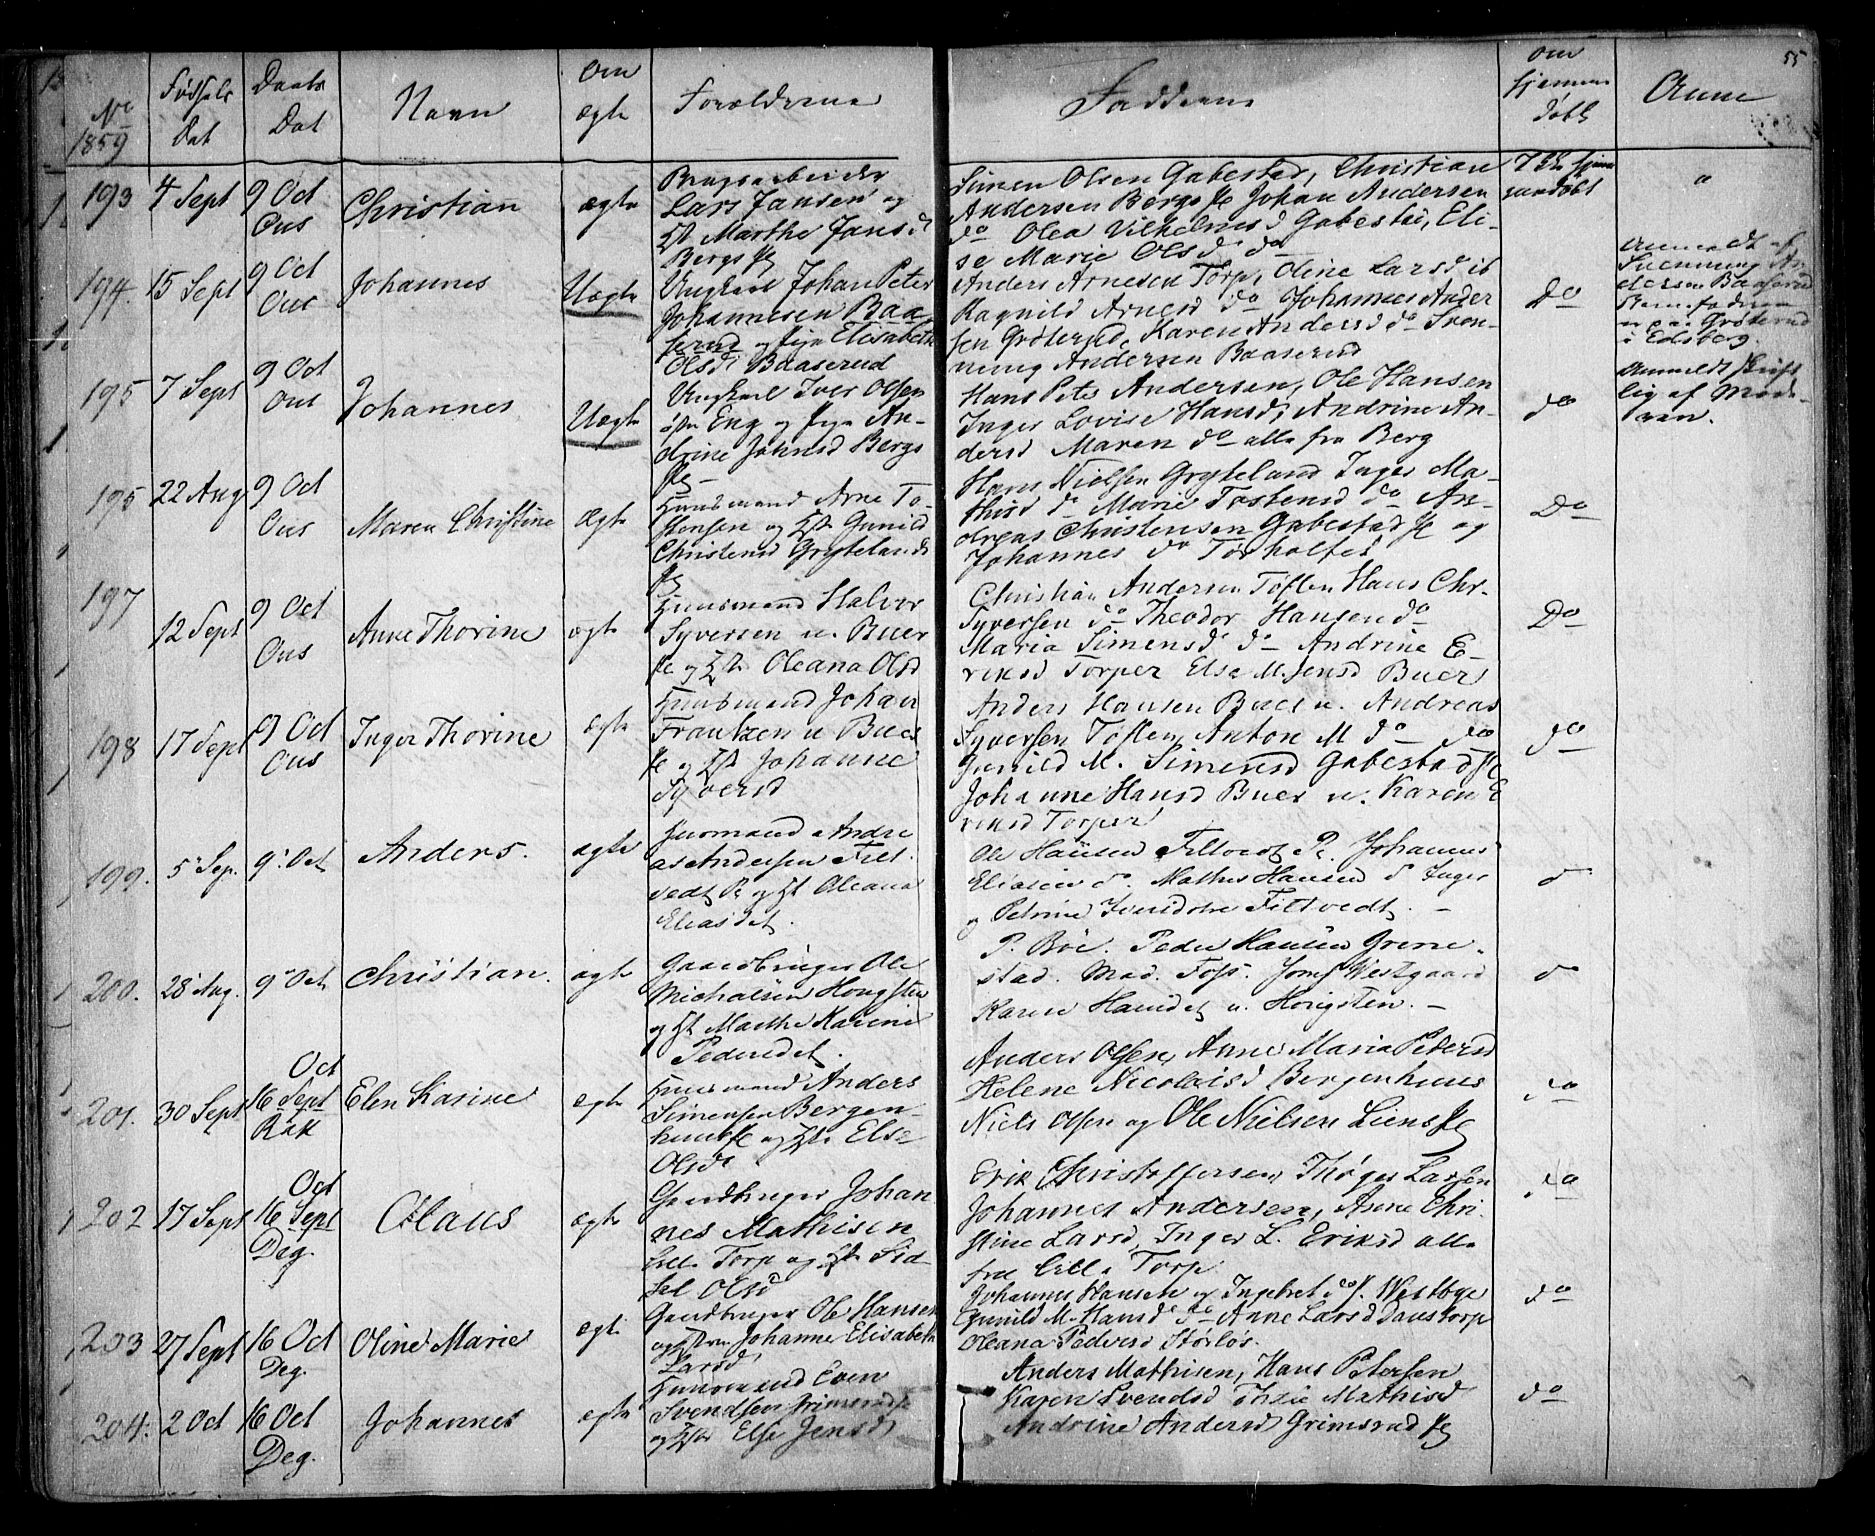 55
No 1859
Fødsels Dat
Daabs Dat
Navn
Om ægte
Forældrene
Fadderne
om hjemmedøbt
Anm
193 4 Sept 9 Oct Ous Christian ægte
Brugsarbeider
Lars Jansen og
Marthe Jansd
Bergs
Simen Olsen Gabestad, Christian
Andersen Bergs Johan Andersen
do Olea Vilhelmesd Gabestad, Eli-
se Marie Olsd do
194. 15 Sept 9 Oct Ous Johannes Uægte
Ungkarl Johan Peter
Johannesen Baa-
serud og Pige Elisabeth
Olsd Baaserud
Anders Arnesen Torp, Oline Larsd ib
Ragnild Arnesd do Johannes Ander
sen Grøterud, Karen Andersd do Sven-
nung Andersen Baaserud
Do
Anmeldt af
Svennung An
dersen Baaserud
Grøterud
i Edsberg.
195 7 Sept 9 Oct Ous Johannes Uægte
Ungkarl Iver Olsen
Eng og Pige An-
drine Johnsd Bergs
Hans Peter Andersen, Ole Hansen
Inger Lovise Hansd, Andrine An-
dersd Maren do alle fra Berg
do
Anmeldt skrift
lig af Mode-
ren.
195 22 Aug 9 Oct Ous Maren Christine Ægte
Huusmand Arne To-
stensen og Gunild
Christensd Grytelands
Hans Nielsen Gryteland Inger Ma-
thisd do Marie Tostensd do An-
dreas Christensen Gabestad og
Johannes do Torholfes
Do
197 12 Sept 9 Oct Ous Anne Thorine ægte
Huusmand Halvor
Syversen u. Buer
og Oleana Olsd
Christian Andersen Toften Hans Chr.
Syversen do Theodor Hansen do
Maria Simensd do Andrine E-
riksd Torper Else M. Jensd Buer
Do
198 17 Sept 9 Oct Ous Inger Thorine ægte
Huusmand Johan
Frantzen u Buer
og Johanne
Syversd
Anders Hansen Buer u. Andreas
Syversen Toften Anton M do do
Gunild M. Simensd Gabestad
Johanne Hansd Buer u. Karen E
riksd Torper
do
199. 5 Sep. 9 Oct Anders. ægte
Huusmand Andre
as Andersen Filt-
vedt og Oleana
Eliasdet.
Ole Hansen Filtvedt Johannes
Eliasen do. Mathis Hansen do Inger
og Petrine Filtvedt. -
200. 28 Aug. 9 Oct Christian. ægte
Gaardbruger Ole
Michalsen Hougsten
og Marthe Karine
Pedersdet.
P. Böe. Peder Hansen Grime-
stad. Mad. Foss. Westgaard
Karen Hansdet u. Hougsten. -
201. 30 Sept 16 Sept Oct Rak Elen Karine ægte
Huusmand Anders
Simensen Bergen-
huus og Else
Olsd
Anders Olsen, Anne Maria Petersd
Helene Nicolaisd Bergenhuus
Niels Olsen og Ole Nielsen Liens
do
202 17 Sept 16 Sept Oct Deg. Olaus ægte
Gaardbruger Johan
nes Mathisen
Lille Torp og Sid-
sel Olsd
Erik Christoffersen, Thøger Larsen
Johannes Andersen, Anne Chri-
stine Larsd, Inger L. Eriksd alle
fra Lille Torp.
do
203 27 Sept 16 Oct Deg. Oline Marie ægte
Gaardbruger Ole Hansen
Johanne Elisabeth
Larsd
Johannes Hansen og Ingebret do
Gunild M. Hansd do Anne Larsd Daustorp
Oleana Pedersd Störlös.
do
204. 2 Oct 16 Oct Deg. Johannes ægte
Huusmand Even
Svendsen Grimsrud
og Else Jensd
Anders Mathisen, Hans Petersen
Karen Svendsd Mathisd
Andrine Andersd Grimsrud
do